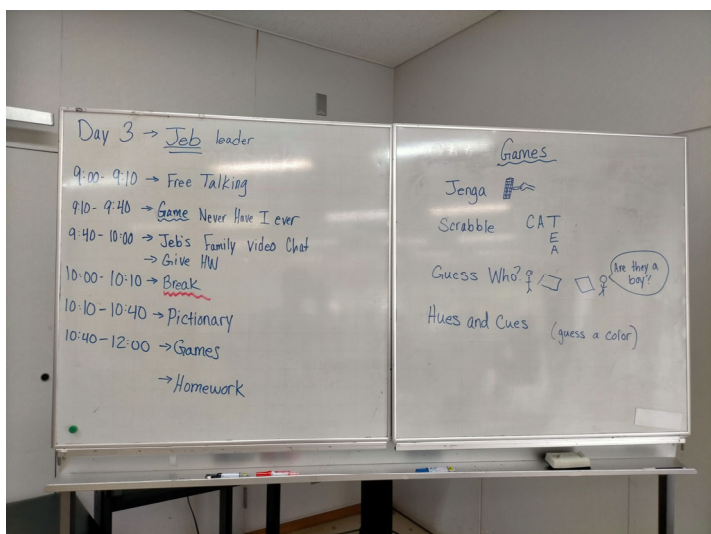 Day 3 → Jeb leader
9:00 - 9:10 → Free Talking
9:10 - 9:40 → Game Never Have I ever
9:40 - 10:00 → Jeb's Family Video Chat
→ Give HW
10:00 - 10:10 → Break
10:10 - 10:40 → Pictionary
10:40 - 12:00 → Games
→ Homework
Games
Jenga
Scrabble CAT
E
A
Guess Who?
Are they a
boy?
Hues and Cues (guess a color)